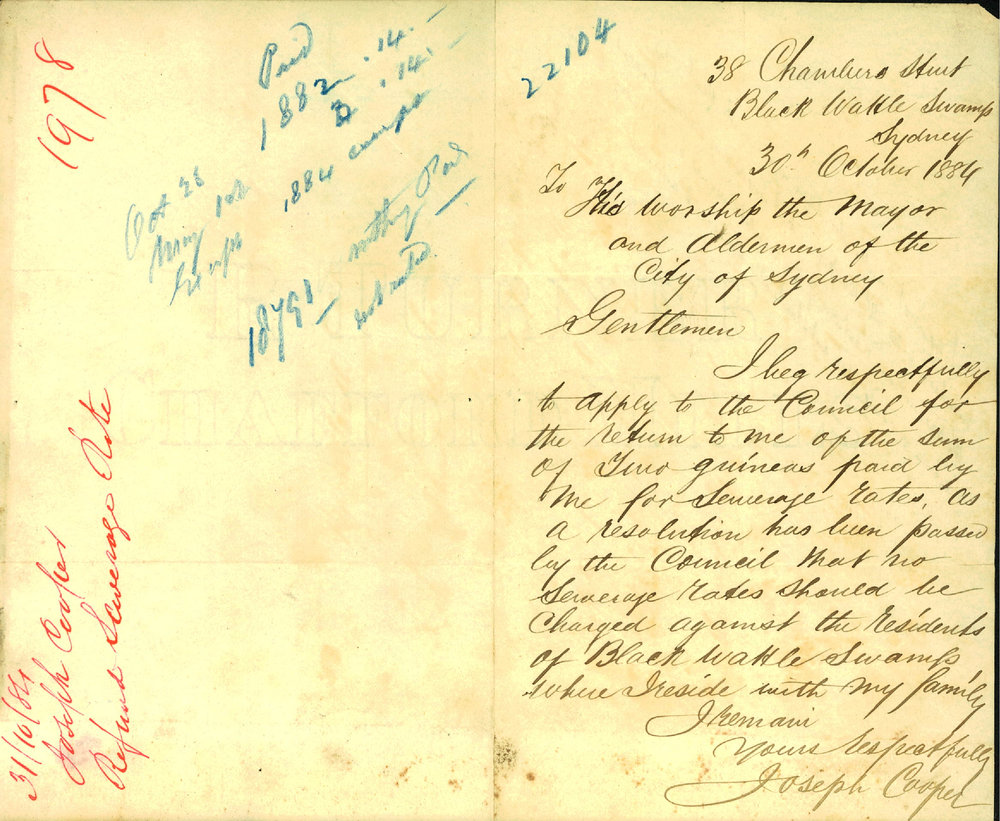 1978
31/10/84
Joseph Cooper
Refund Sewerage Rate
Paid
1882 . 14 . –
3 . 14 . –
1884
Oct 28
May
1879
–
22104
38 Chambers Street
Black Wattle Swamp
Sydney
30th October 1884
To
His Worship the Mayor
and Aldermen of the
City of Sydney
Gentlemen
I beg respectfully
to apply to the Council for
the return to me of the sum
of Two guineas paid by
me for Sewerage rates, as
a resolution has been passed
by the Council that no
Sewerage rates should be
Charged against the residents
of Black Wattle Swamp
where I reside with my family
I remain
Yours respectfully
Joseph Cooper